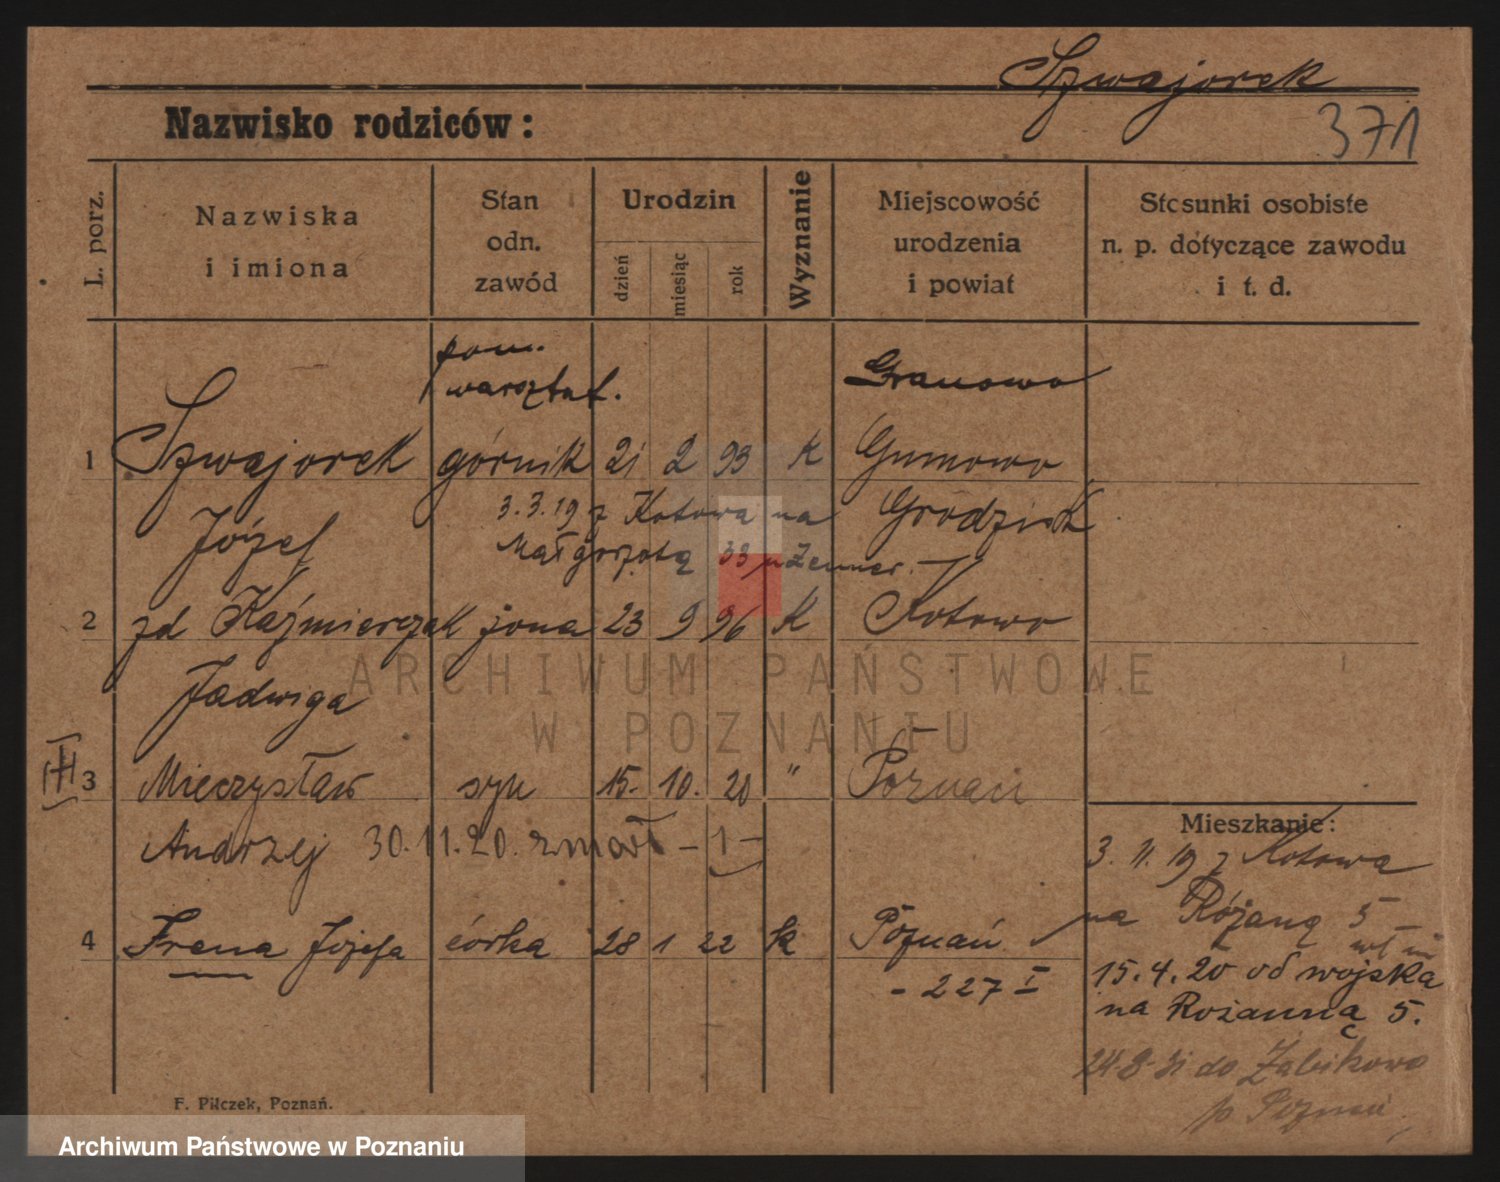 Szwajorek
Nazwisko rodziców:
371
L. porz.
Nazwiska
i imiona
Stan
odn.
zawód
Urodzin
dzień
miesiąc
rok
Wyznanie
Miejscowość
urodzenia
i powiat
Stosunki osobiste
n. p. dotyczące zawodu
i t. d.
pom.
warsztat.
Granowo
1 Szwajorek górnik 21 2 93 K Gumowo
Józef Grodzisk
3.3.19 z Kotowa na
Małgorzatą 33
2 zd Kaźmierczak żona 23 9 96 K Kotowo
Jadwiga
ARCHIWUM PAŃSTWOWE
W POZNANIU
3 Mieczysław syn 15. 10. 20 " Poznań
Andrzej 30.11.20. zmarł - 1 -
4 Irena Józefa córka 28 1 22 k Poznań
- 227 I
Mieszkanie:
3. 11. 19 z Kotowa
na Różaną 5
15.4.20 od wojska
na Rożanną 5.
24-8-31 do Żabikowo
p Poznań
F. Pilczek, Poznań.
Archiwum Państwowe w Poznaniu